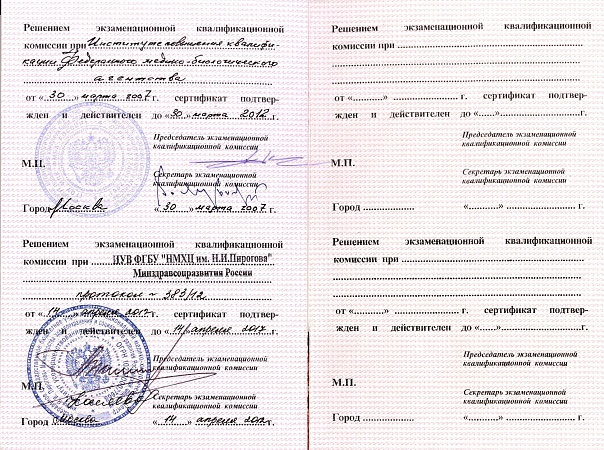 Решением экзаменационной квалификационной
комиссии при Институте повышения квалифи-
кации Федерального медико-биологического
агентства
от «30» марта 2007 г. сертификат подтвер-
жден и действителен до «30» марта 2012 г.
Председатель экзаменационной
квалификационной комиссии
М.П.
Секретарь экзаменационной
квалификационной комиссии
Город Москва «30» марта 2007 г.
Решением экзаменационной квалификационной
комиссии при ИУВ ФГБУ "НМХЦ им. Н.И.Пирогова"
Минздравсоцразвития России
протокол ~ 383/12
от «14» апреля 2012 г. сертификат подтвер-
жден и действителен до «14» апреля 2017 г.
Председатель экзаменационной
квалификационной комиссии
М.П.
Секретарь экзаменационной
квалификационной комиссии
Город Москва «14» апреля 2012 г.
Решением экзаменационной квалификационной
комиссии при
от «......» г. сертификат подтвер-
жден и действителен до «......» г.
Председатель экзаменационной
квалификационной комиссии
М.П.
Секретарь экзаменационной
квалификационной комиссии
Город «..........» г.
Решением экзаменационной квалификационной
комиссии при
от «......» г. сертификат подтвер-
жден и действителен до «......» г.
Председатель экзаменационной
квалификационной комиссии
М.П.
Секретарь экзаменационной
квалификационной комиссии
Город «..........» г.